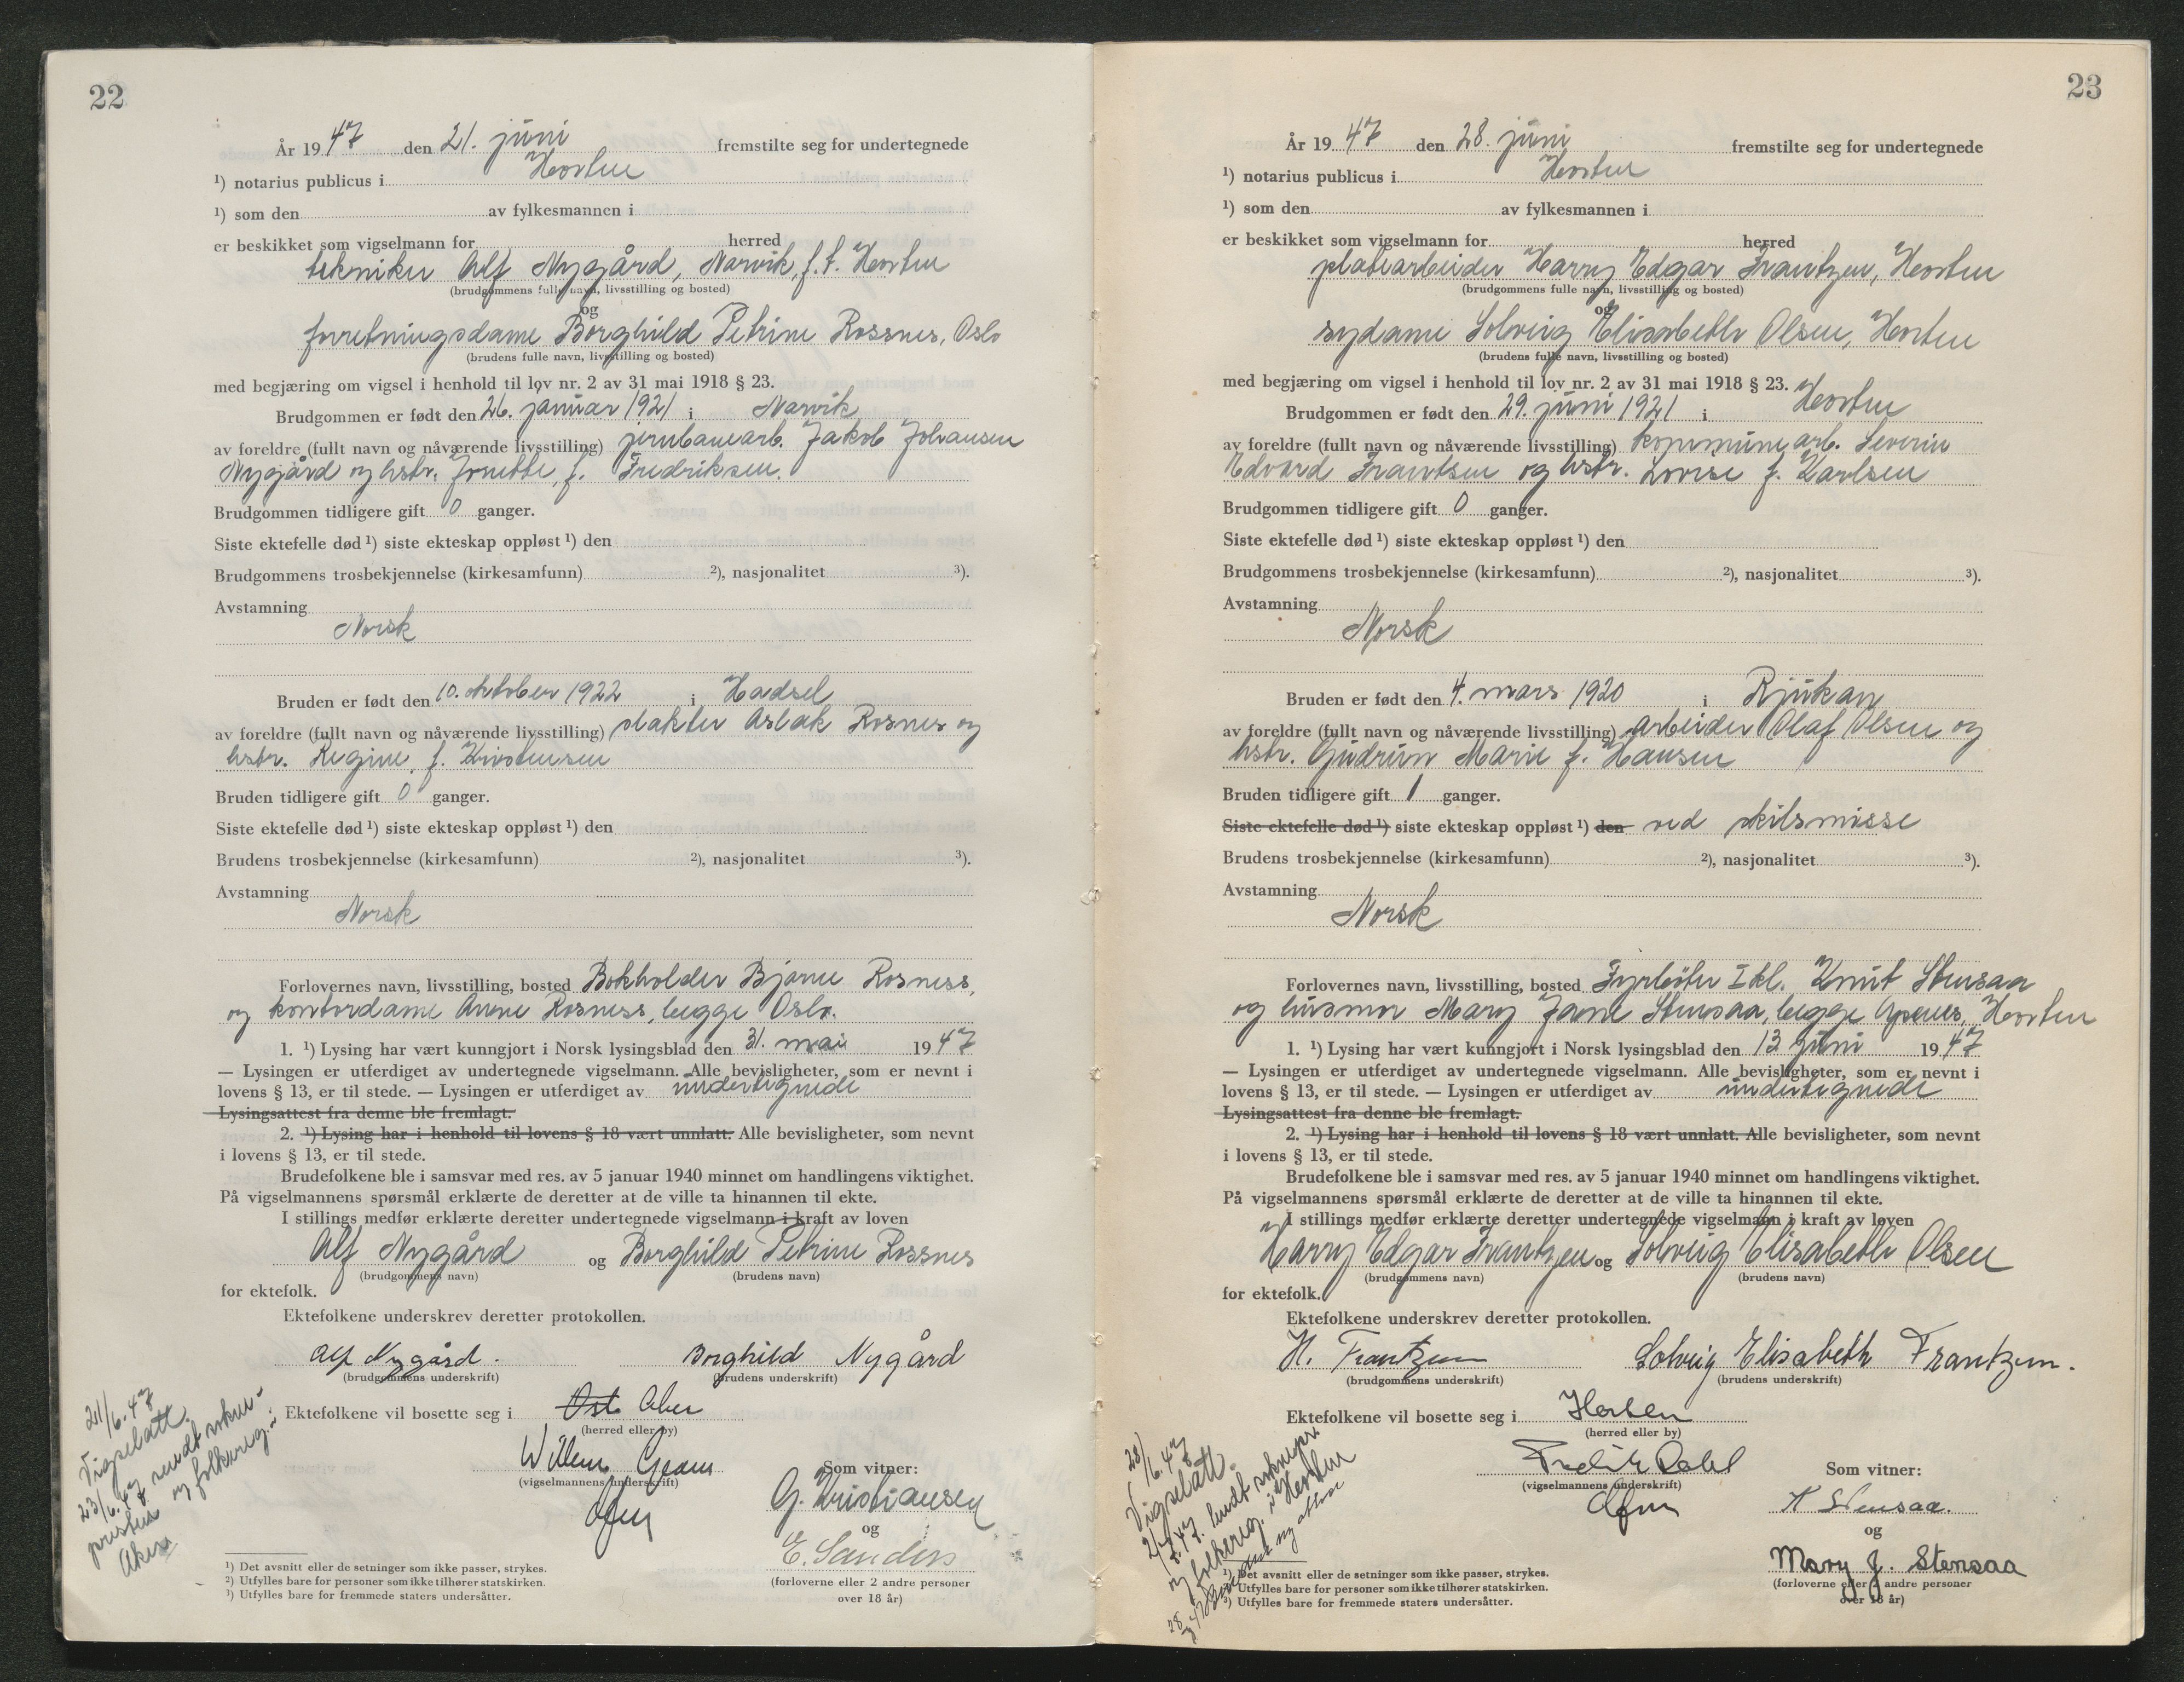 22
År 1947 den 21. juni fremstilte seg for undertegnede
¹) notarius publicus i Horten
¹) som den av fylkesmannen i
er beskikket som vigselmann for herred
tekniker Alf Nygård, Narvik, f.t. Horten
(brudgommens fulle navn, livsstilling og bosted)
og
forretningsdame Borghild Petrine Rossnes, Oslo
(brudens fulle navn, livsstilling og bosted)
med begjæring om vigsel i henhold til lov nr. 2 av 31 mai 1918 § 23.
Brudgommen er født den 26. januar 1921 i Narvik
av foreldre (fullt navn og nåværende livsstilling) jernbanearb. Jakob Johansen
Nygård og hstr. Jonette, f. Fredriksen.
Brudgommen tidligere gift 0 ganger.
Siste ektefelle død ¹) siste ekteskap oppløst ¹) den
Brudgommens trosbekjennelse (kirkesamfunn) ²), nasjonalitet ³).
Avstamning
Norsk
Bruden er født den 10. oktober 1922 i Hadsel
av foreldre (fullt navn og nåværende livsstilling) slakter Aslak Rosnes og
hstr. Regine, f. Kristensen
Bruden tidligere gift 0 ganger.
Siste ektefelle død ¹) siste ekteskap oppløst ¹) den
Brudens trosbekjennelse (kirkesamfunn) ²), nasjonalitet ³).
Avstamning
Norsk
Forlovernes navn, livsstilling, bosted Bokholder Bjarne Rosness,
og kontordame Anne Rosness, begge Oslo.
1. ¹) Lysing har vært kunngjort i Norsk lysingsblad den 31. mai 1947
— Lysingen er utferdiget av undertegnede vigselmann. Alle bevisligheter, som er nevnt i
lovens § 13, er til stede. — Lysingen er utferdiget av undertegnede
Lysingsattest fra denne ble fremlagt.
2. ¹) Lysing har i henhold til lovens § 18 vært unnlatt. Alle bevisligheter, som nevnt
i lovens § 13, er til stede.
Brudefolkene ble i samsvar med res. av 5 januar 1940 minnet om handlingens viktighet.
På vigselmannens spørsmål erklærte de deretter at de ville ta hinannen til ekte.
I stillings medfør erklærte deretter undertegnede vigselmann i kraft av loven
Alf Nygård og Borghild Petrine Rossnes
(brudgommens navn) (brudens navn)
for ektefolk.
Ektefolkene underskrev deretter protokollen.
Alf Nygård. Borghild Nygård
(brudgommens underskrift) (brudens underskrift)
Ektefolkene vil bosette seg i Oslo Aker
(herred eller by)
(vigselmannens underskrift) Som vitner:
G. Kristiansen
og
E. Sanders
(forloverne eller 2 andre personer
over 18 år)
21/6.47
Vigselatt.
23/6.47 sendt
og folkereg.
Aker
¹) Det avsnitt eller de setninger som ikke passer, strykes.
²) Utfylles bare for personer som ikke tilhører statskirken.
³) Utfylles bare for fremmede staters undersåtter.
23
År 1947 den 28. juni fremstilte seg for undertegnede
¹) notarius publicus i Horten
¹) som den av fylkesmannen i
er beskikket som vigselmann for herred
platearbeider Harry Edgar Frantzen, Horten
(brudgommens fulle navn, livsstilling og bosted)
og
sydame Solveig Elisabeth Olsen, Horten
(brudens fulle navn, livsstilling og bosted)
med begjæring om vigsel i henhold til lov nr. 2 av 31 mai 1918 § 23.
Brudgommen er født den 29. juni 1921 i Horten
av foreldre (fullt navn og nåværende livsstilling) kommunearb. Severin
Edvard Frantsen og hstr. Lovise f. Karlsen
Brudgommen tidligere gift 0 ganger.
Siste ektefelle død ¹) siste ekteskap oppløst ¹) den
Brudgommens trosbekjennelse (kirkesamfunn) ²), nasjonalitet ³).
Avstamning
Norsk
Bruden er født den 4. mars 1920 i Rjukan
av foreldre (fullt navn og nåværende livsstilling) arbeider Olaf Olsen og
hstr. Gudrun Marie f. Hansen
Bruden tidligere gift 1 ganger.
Siste ektefelle død ¹) siste ekteskap oppløst ¹) den ved skilsmisse
Brudens trosbekjennelse (kirkesamfunn) ²), nasjonalitet ³).
Avstamning
Norsk
Forlovernes navn, livsstilling, bosted Fyrbøter I kl. Knut Stensaa
og husmor Mary Jane Stensaa, begge Apenes, Horten
1. ¹) Lysing har vært kunngjort i Norsk lysingsblad den 13 juni 1947
— Lysingen er utferdiget av undertegnede vigselmann. Alle bevisligheter, som er nevnt i
lovens § 13, er til stede. — Lysingen er utferdiget av undertegnede
Lysingsattest fra denne ble fremlagt.
2. ¹) Lysing har i henhold til lovens § 18 vært unnlatt. Alle bevisligheter, som nevnt
i lovens § 13, er til stede.
Brudefolkene ble i samsvar med res. av 5 januar 1940 minnet om handlingens viktighet.
På vigselmannens spørsmål erklærte de deretter at de ville ta hinannen til ekte.
I stillings medfør erklærte deretter undertegnede vigselmann i kraft av loven
Harry Edgar Frantzen og Solveig Elisabeth Olsen
(brudgommens navn) (brudens navn)
for ektefolk.
Ektefolkene underskrev deretter protokollen.
H. Frantzen Solveig Elisabeth Frantzen.
(brudgommens underskrift) (brudens underskrift)
Ektefolkene vil bosette seg i Horten
(herred eller by)
Fredrik Dahl
(vigselmannens underskrift) Som vitner:
K Stensaa.
og
Mary J. Stensaa
(forloverne eller 2 andre personer
over 18 år)
28/6.47
Vigselatt.
og folkereg. i Horten
¹) Det avsnitt eller de setninger som ikke passer, strykes.
²) Utfylles bare for personer som ikke tilhører statskirken.
³) Utfylles bare for fremmede staters undersåtter.